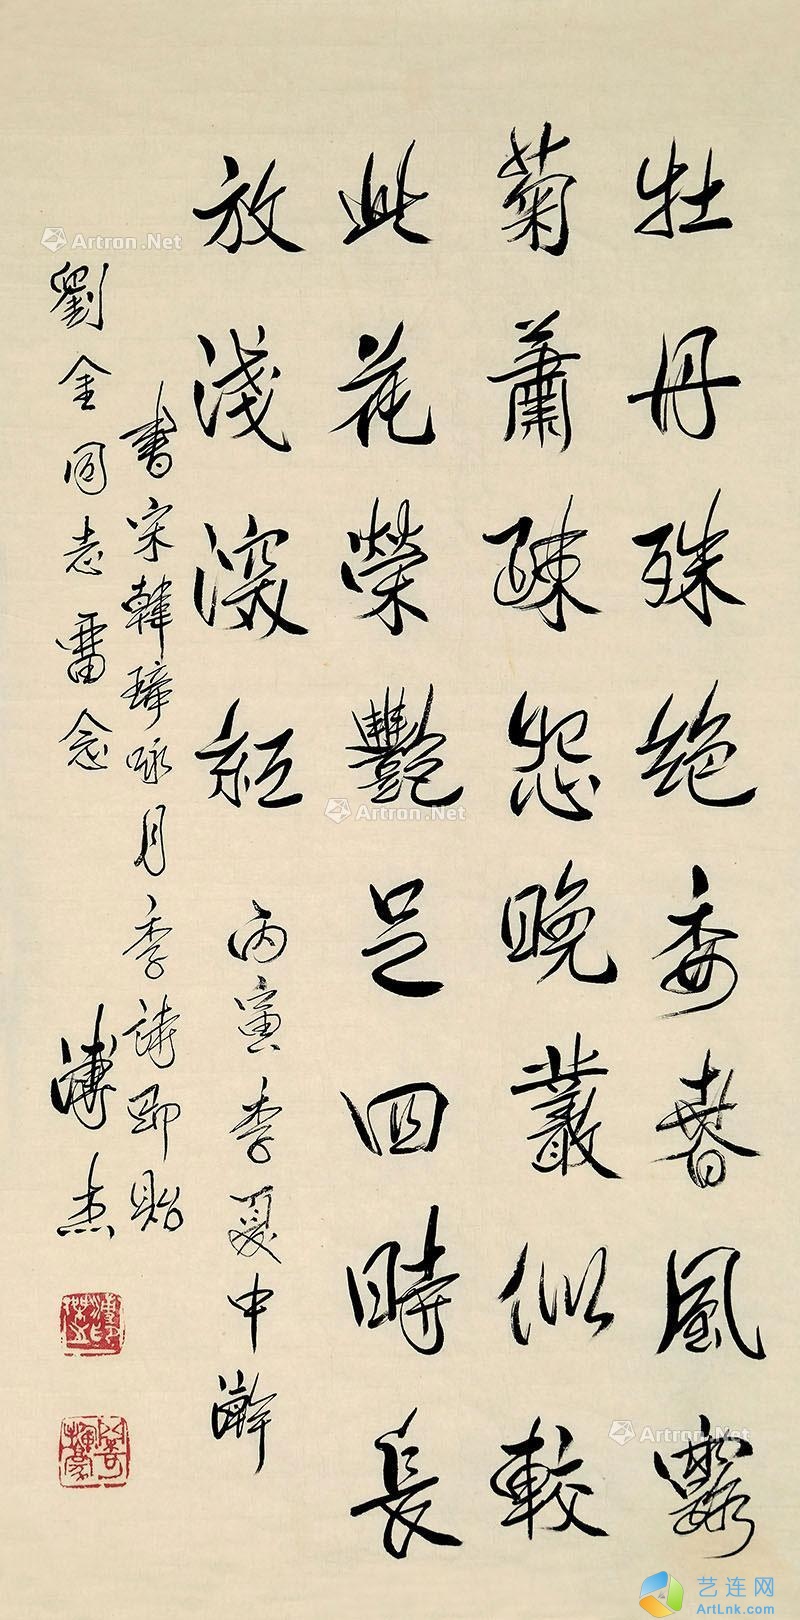 牡丹殊絶委春風露
菊蕭疎怨晚叢似較
此花榮艷足四時長
放淺深紅 丙寅季夏中澣
書宋韓琦咏月季詩即貽
劉金同志畱念 溥杰
溥傑之印
Artron.Net
Artron.Net
Artron.Net
艺连网
ArtLnk.com